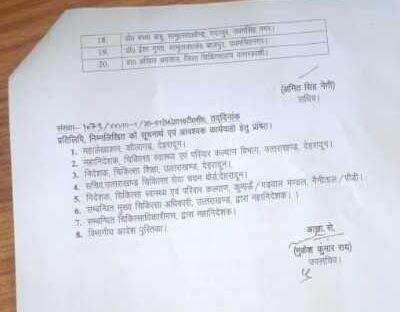 18.
19. डा०
20. डा० जिला चिकित्सालय उत्तरकाशी।
(अमित सिंह नेगी)
सचिव।
संख्या- तद्दिनांक
प्रतिलिपि, निम्नलिखित को सूचनार्थ एवं आवश्यक कार्यवाही हेतु प्रेषित।
1. महालेखाकार, ओबराय, देहरादून।
2. महानिदेशक, चिकित्सा स्वास्थ्य एवं परिवार कल्याण विभाग, उत्तराखण्ड, देहरादून।
3. निदेशक, चिकित्सा शिक्षा, उत्तराखण्ड, देहरादून।
4. सचिव,उत्तराखण्ड चिकित्सा सेवा चयन बोर्ड,देहरादून।
5. निदेशक, चिकित्सा स्वास्थ्य एवं परिवार कल्याण, कुमायूँ / गढ़वाल मण्डल, नैनीताल / पौड़ी।
6. सम्बन्धित मुख्य चिकित्सा अधिकारी, उत्तराखण्ड, द्वारा महानिदेशक।
7. सम्बन्धित चिकित्साधिकारीगण, द्वारा महानिदेशक।
8. विभागीय आदेश पुस्तिका।
आज्ञा से,
(मुकेश कुमार राय)
उपसचिव।